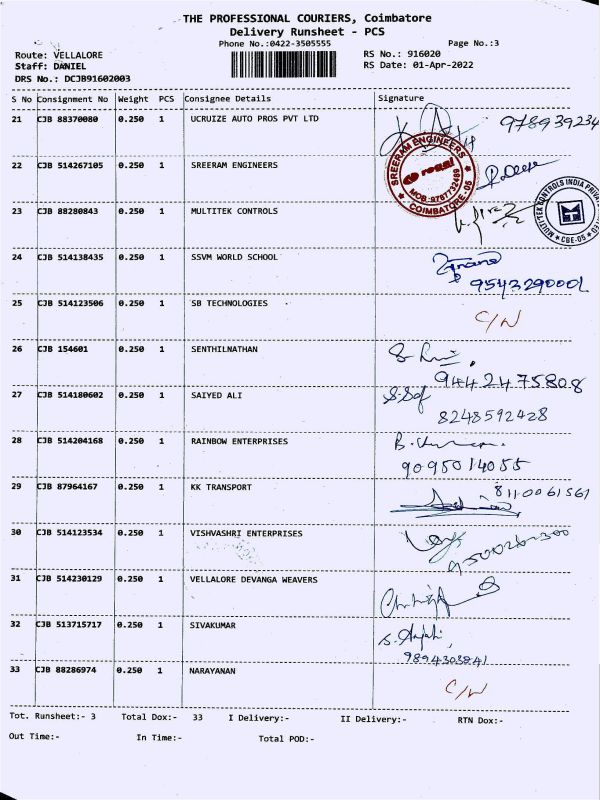 THE PROFESSIONAL COURIERS, Coimbatore
Delivery Runsheet - PCS
Phone No.:0422-3505555 Page No.:3
Route: VELLALORE RS No.: 916020
Staff: DANIEL RS Date: 01-Apr-2022
DRS No.: DCJB91602003
S No Consignment No Weight PCS Consignee Details Signature
21 CJB 88370080 0.250 1 UCRUIZE AUTO PROS PVT LTD
SREERAM ENGINEERS
COIMBATORE-05
22 CJB 514267105 0.250 1 SREERAM ENGINEERS
23 CJB 88280843 0.250 1 MULTITEK CONTROLS
CBE-05
24 CJB 514138435 0.250 1 SSVM WORLD SCHOOL
9543290001
25 CJB 514123506 0.250 1 SB TECHNOLOGIES
C/N
26 CJB 154601 0.250 1 SENTHILNATHAN
9442475808
27 CJB 514180602 0.250 1 SAIYED ALI
8248592428
28 CJB 514204168 0.250 1 RAINBOW ENTERPRISES
9095014055
29 CJB 87964167 0.250 1 KK TRANSPORT 8110061561
30 CJB 514123534 0.250 1 VISHVASHRI ENTERPRISES
31 CJB 514230129 0.250 1 VELLALORE DEVANGA WEAVERS
32 CJB 513715717 0.250 1 SIVAKUMAR
S. Anjali,
9894303841
33 CJB 88286974 0.250 1 NARAYANAN
C/N
Tot. Runsheet:- 3 Total Dox:- 33 I Delivery:- II Delivery:- RTN Dox:-
Out Time:- In Time:- Total POD:-